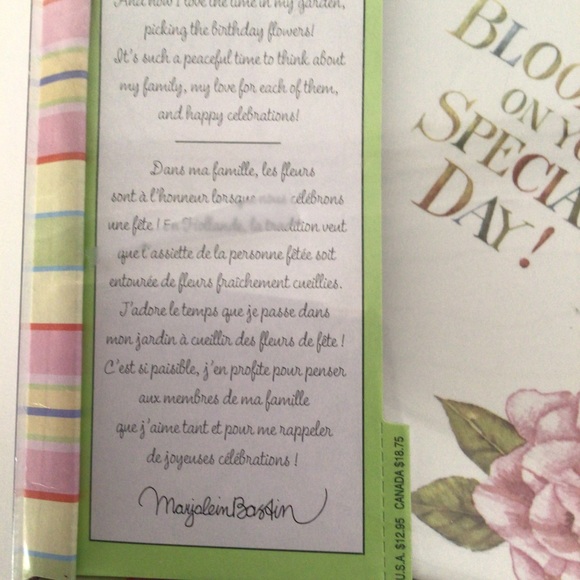 And how I love the time in my garden,
picking the birthday flowers!
It's such a peaceful time to think about
my family, my love for each of them,
and happy celebrations!
Dans ma famille, les fleurs
sont à l'honneur lorsque nous célébrons
une fête ! En Hollande, la tradition veut
que l'assiette de la personne fêtée soit
entourée de fleurs fraîchement cueillies.
J'adore le temps que je passe dans
mon jardin à cueillir des fleurs de fête !
C'est si paisible, j'en profite pour penser
aux membres de ma famille
que j'aime tant et pour me rappeler
de joyeuses célébrations !
Marjolein Bastin
U.S.A. $12.95 CANADA $18.75
BLOO
ON YO
SPECIA
DAY!